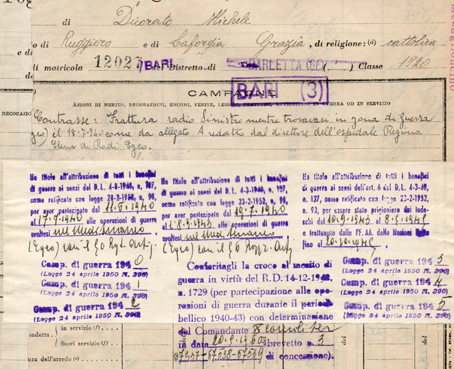 di Dicorato Michele
o di Ruggiero e di Laforgia Grazia, di religione: (d) cattolica
di matricola 12027 /BARI Distretto di BARLETTA Classe 1920
BARI (3)
CAMPAGNE
AZIONI DI MERITO, DECORAZIONI, ENCOMI, FERITE, IN GUERRA OD IN SERVIZIO
DECORAZIO
Contrasse: Frattura radio sinistro mentre trovavasi in zona di guerra
il 18-7-940 come da allegato A redatto dal direttore dell'ospedale Regina
Elena di Rodi Egeo.
Ha titolo all'attribuzione di tutti i benefici
di guerra ai sensi del D.L. 4-3-1948, n. 137,
come ratificato con legge 23-2-1952, n. 93,
per aver partecipato dal 11-6-1940
al 17-7-1940 alle operazioni di guerra
svoltesi nel Mediterraneo
(Egeo) con il
Camp. di guerra 194 0
(Legge 24 aprile 1950 N. 390)
Camp. di guerra 194 1
(Legge 24 aprile 1950 N. 390)
Camp. di guerra 194 2
(Legge 24 aprile 1950 N. 390)
Ha titolo all'attribuzione di tutti i benefici
di guerra ai sensi del D.L. 4-3-1948,
come ratificato con legge 23-2-1952,
per aver partecipato dal 19-7-1940
al 8-9-1943 alle operazioni di guerra
svoltesi nel Mediterraneo
(Egeo) con il
Conferitagli la croce al merito di
guerra in virtù del R.D. 14-12-1942,
n. 1729 (per partecipazione alle ope-
razioni di guerra durante il periodo
bellico 1940-43) con determinazione
del Comandante
in data 20-9-1960 (brevetto
di concessione).
Ha titolo all'attribuzione di tutti i benefici
di guerra ai sensi dell'art. 6 del D.L. 4-3-48,
come ratificato con legge 23-2-1952,
n. 93, per essere stato prigioniero dei
dal 10-9-1943 al 8-5-1945
e trattenuto dalle FF.AA. delle Nazioni
fino al
Camp. di guerra 194 3
(Legge 24 aprile 1950 N. 390)
Camp. di guerra 194 4
(Legge 24 aprile 1950 N. 390)
Camp. di guerra 194 5
(Legge 24 aprile 1950 N. 390)
in servizio (f)
fuori servizio (f)
ura dell'arredo (e)